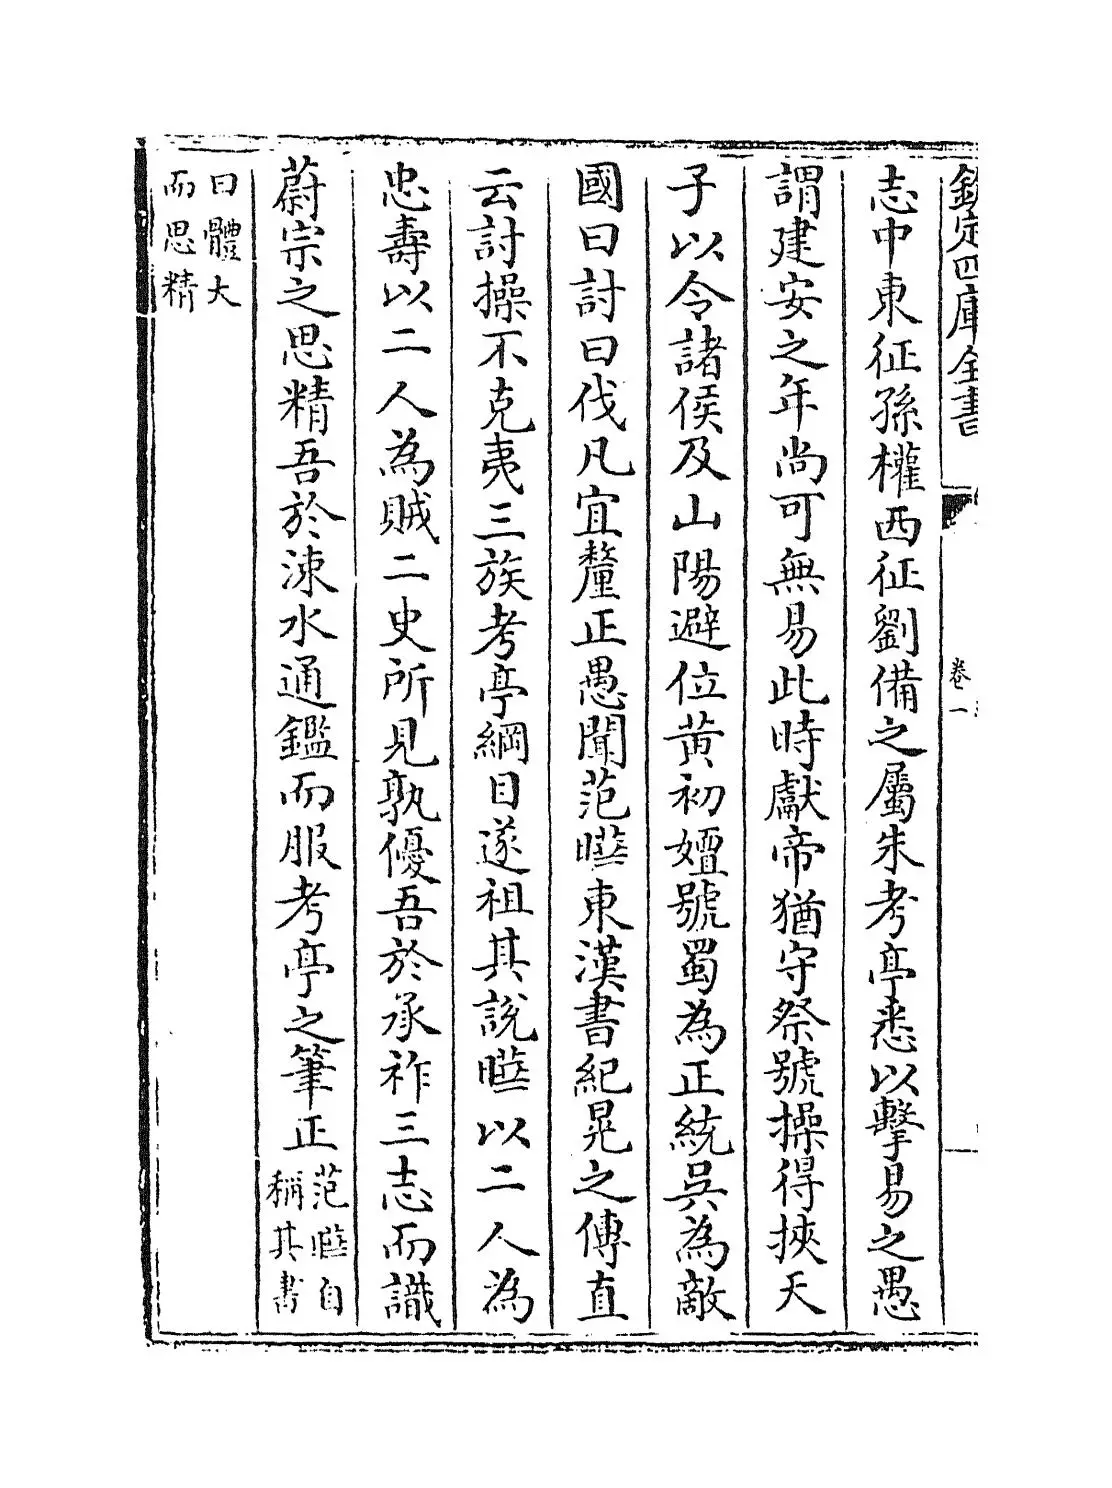 欽定四庫全書
卷一
志中東征孫權西征劉備之屬朱考亭悉以擊易之愚
謂建安之年尚可無易此時獻帝猶守祭號操得挾天
子以令諸侯及山陽避位黃初嬗號蜀為正統吳為敵
國曰討曰伐凡宜釐正愚聞范曄東漢書紀晃之傳直
云討操不克夷三族考亭綱目遂祖其說曄以二人為
忠壽以二人為賊二史所見孰優吾於承祚三志而識
蔚宗之思精吾於涑水通鑑而服考亭之筆正
范曄自
稱其書
曰體大
而思精